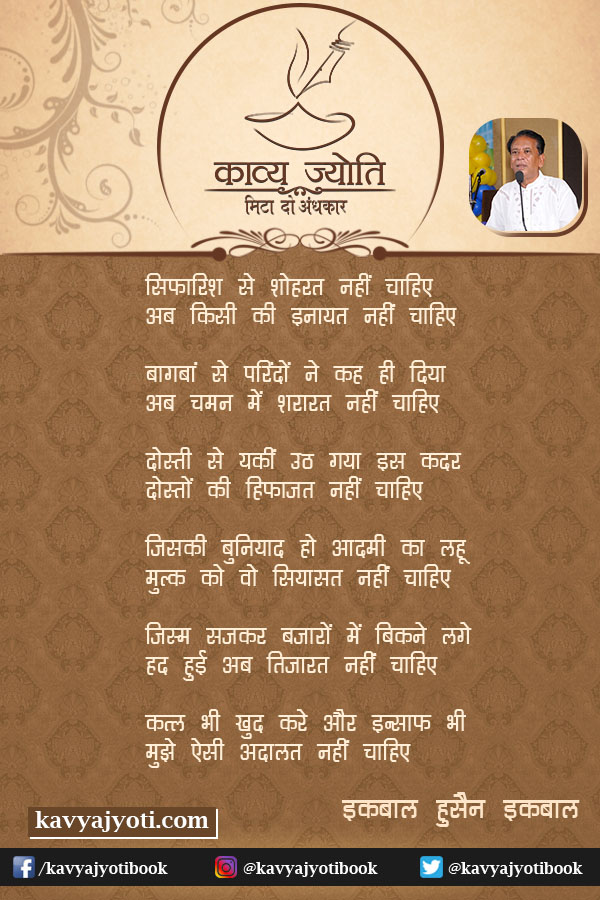 काव्य ज्योति
मिटा दो अंधकार
सिफारिश से शोहरत नहीं चाहिए
अब किसी की इनायत नहीं चाहिए
बागबां से परिंदों ने कह ही दिया
अब चमन में शरारत नहीं चाहिए
दोस्ती से यकीं उठ गया इस कदर
दोस्तों की हिफाजत नहीं चाहिए
जिसकी बुनियाद हो आदमी का लहू
मुल्क को वो सियासत नहीं चाहिए
जिस्म सजकर बजारों में बिकने लगे
हद हुई अब तिजारत नहीं चाहिए
कत्ल भी खुद करे और इन्साफ भी
मुझे ऐसी अदालत नहीं चाहिए
इकबाल हुसैन इकबाल
kavyajyoti.com
/kavyajyotibook @kavyajyotibook @kavyajyotibook